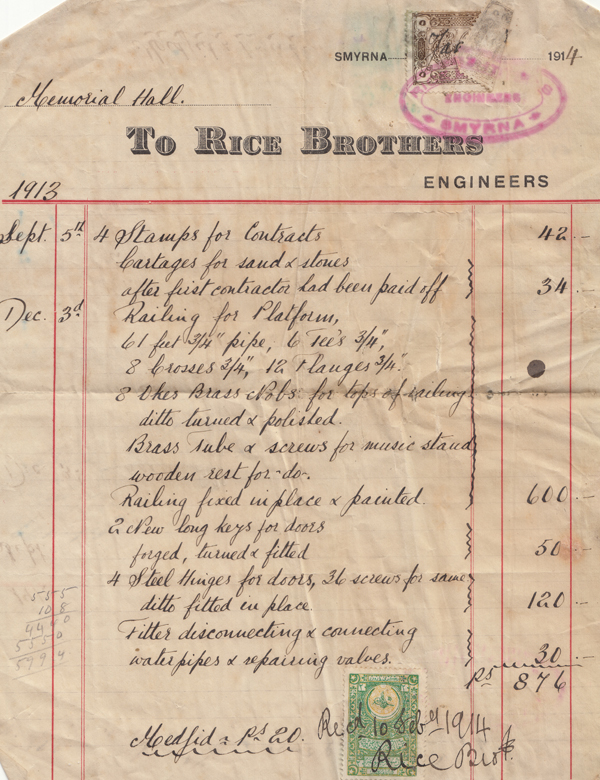 SMYRNA 1914
ENGINEERS
SMYRNA
Memorial Hall.
TO RICE BROTHERS
ENGINEERS
1913
Sept. 5th 4 Stamps for Contracts 42.-
Cartages for sand & stones
after first contractor had been paid off 34.-
Dec. 3d Railing for Platform,
61 feet 3/4" pipe, 6 Tee's 3/4",
8 Crosses 3/4", 12 Flanges 3/4".
8 Okes Brass Nobs for tops of railing
ditto turned & polished.
Brass Tube & screws for music stand
wooden rest for -do-.
Railing fixed in place & painted. 600.-
2 New long keys for doors
forged, turned & fitted 50.-
4 Steel Hinges for doors, 36 screws for same
ditto fitted in place. 120.-
Fitter disconnecting & connecting
waterpipes & repairing valves. 30.-
Ps 876
Medjid = Ps 20. Recd 10 Feby 1914
Rice Bros
555
108
4440
5550
5994